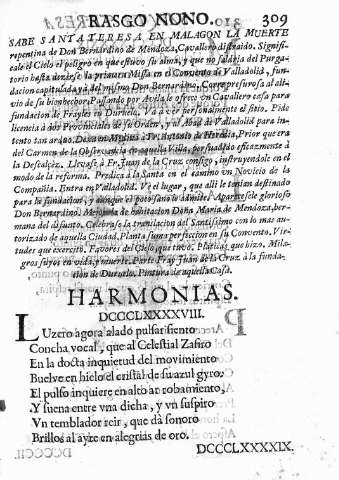 RASGO NONO. 309
SABE SANTA TERESA EN MALAGON LA MUERTE
repentina de Don Bernardino de Mendoza, Cavallero distraido. Signifi-
cale el Cielo el peligro en que estuvo su alma, y que no saldria del Purga-
torio hasta dezirse la primera Missa en el Convento de Valladolid, fun-
dacion capitulada yà del mismo Don Bernardino. Corre presurosa al ali-
vio de su bienhechor. Passando por Avila le ofrece un Cavallero casa para
fundacion de Frayles en Duruelo. Và à ver personalmente el sitio. Pide
licencia à dos Provinciales de su Orden, y al Abad de Valladolid para in-
tento tan arduo. Dexa en Medina à Fr. Antonio de Heredia, Prior que era
del Carmen de la Observancia de aquella Villa, persuadido eficazmente à
la Descalçez. Llevase à Fr. Juan de la Cruz consigo, instruyendole en el
modo de la reforma. Predica la Santa en el camino un Novicio de la
Compañia. Entra en Valladolid. Ve el lugar, que alli le tenian destinado
para la fundacion, y aunque el poco sano le admite. Aparecesele glorioso
Don Bernardino. Mejorala de habitacion Doña Maria de Mendoza, her-
mana del difunto. Celebrase la translacion del Santissimo con lo mas au-
torizado de aquella Ciudad. Planta suma perfeccion en su Convento. Vir-
tudes que exercitò. Favores del Cielo que tuvo. Platicas que hizo. Mila-
gros suyos en vida, y muerte. Parte Fray Juan de la Cruz à la funda-
cion de Duruelo. Pintura de aquella Casa.
HARMONIAS.
DCCCLXXXXVIII.
LUzero agora alado pulsat siento
Concha vocal, que al Celestial Zafiro
En la docta inquietud del movimiento
Buelve en hielo el cristal de su azul gyro.
El pulso inquiere en alto arrobamiento,
Y suena entre vna dicha, y vn suspiro
Vn temblador reir, que dà sonoro
Brillos al ayre en alegrias de oro.
DCCCLXXXXIX.